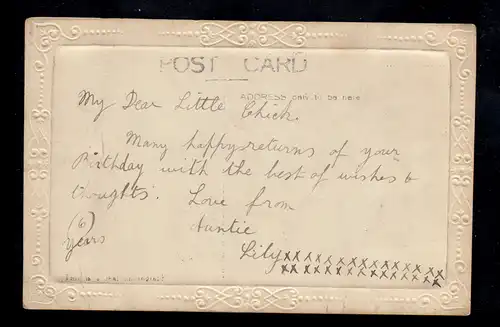 POST CARD
ADDRESS only to be here
My Dear Little Chick.
Many happy returns of your
Birthday with the best of wishes &
thoughts. Love from
(6) Auntie
years Lily xxxxxxxxxxxxxxxxx
xxxxxxxxxxxxxxxx